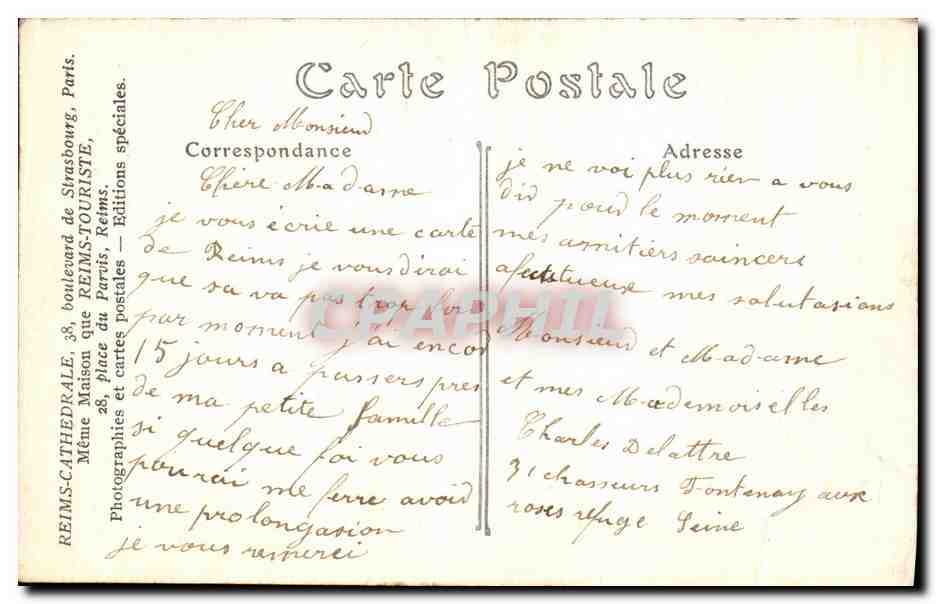 REIMS-CATHEDRALE, 38, boulevard de Strasbourg, Paris.
Même Maison que REIMS-TOURISTE,
28, place du Parvis, Reims.
Photographies et cartes postales — Editions spéciales.
Carte Postale
Cher Monsieur
Correspondance
Chère Madame
je vous écrie une carte
de Reims je vous dirai
que sa va pas trop
par moment j'ai encor
15 jours a passers pres
de ma petite famille
si quelque foi vous
pourai me ferre avoid
une prolongasion
je vous remerci
Adresse
je ne voi plus rien a vous
did pour le moment
mes amitiers sainceri
afectueux mes salutasions
Monsieur et Madame
et mes Mademoiselles
Charles Delattre
31 chasseurs Fontenay aux
roses refuge Seine
CPAPHIL